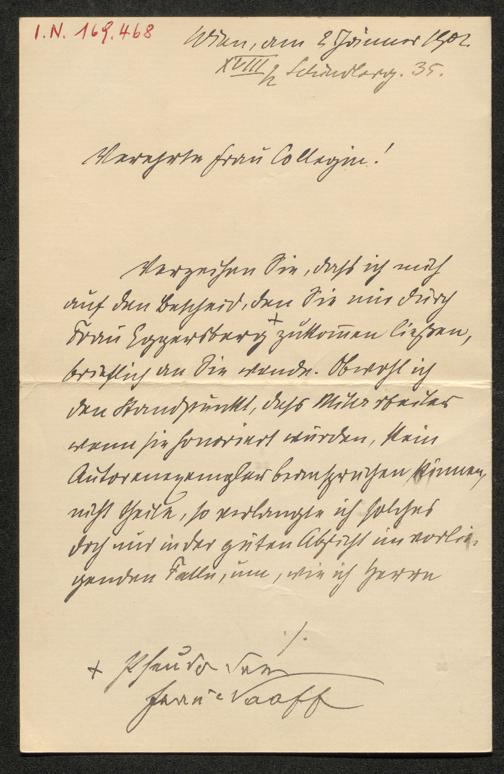 I.N. 169.468
Wien, am 2 Jänner 1901.
XVIII/2 Schindlerg. 35.
Verehrte Frau Collegin!
Verzeihen Sie, daß ich mich
auf den Bescheid, den Sie mir durch
Frau Eggersberg + zukom̅en ließen,
brieflich an Sie wende. Obwohl ich
den Standpunkt, daß Mitarbeiter
wenn sie honoriert würden, kein
Autorenexemplar beanspruchen können,
nicht theile, so verlangte ich solches
doch nur in der guten Absicht im vorlie-
genden Falle, um, wie ich Herrn
./.
+ Pseudo
Frau